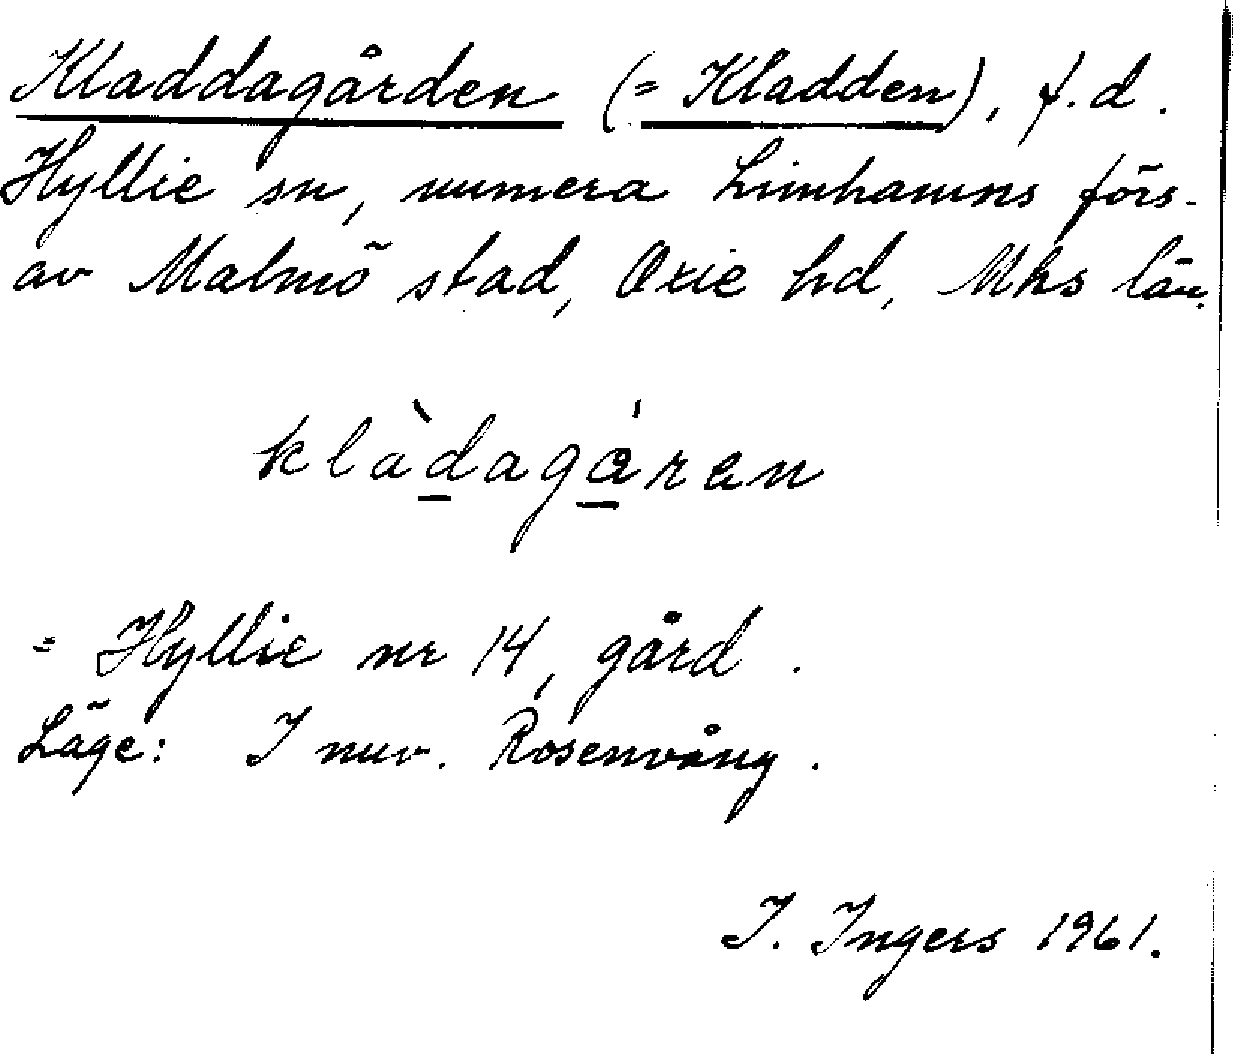 Kladdagården (= Kladden), f.d.
Hyllie sn, numera Limhamns förs.
av Malmö stad, Oxie hd, Mhs län.
klàdagáren
= Hyllie nr 14, gård.
Läge: I nuv. Rosenvång.
I. Ingers 1961.